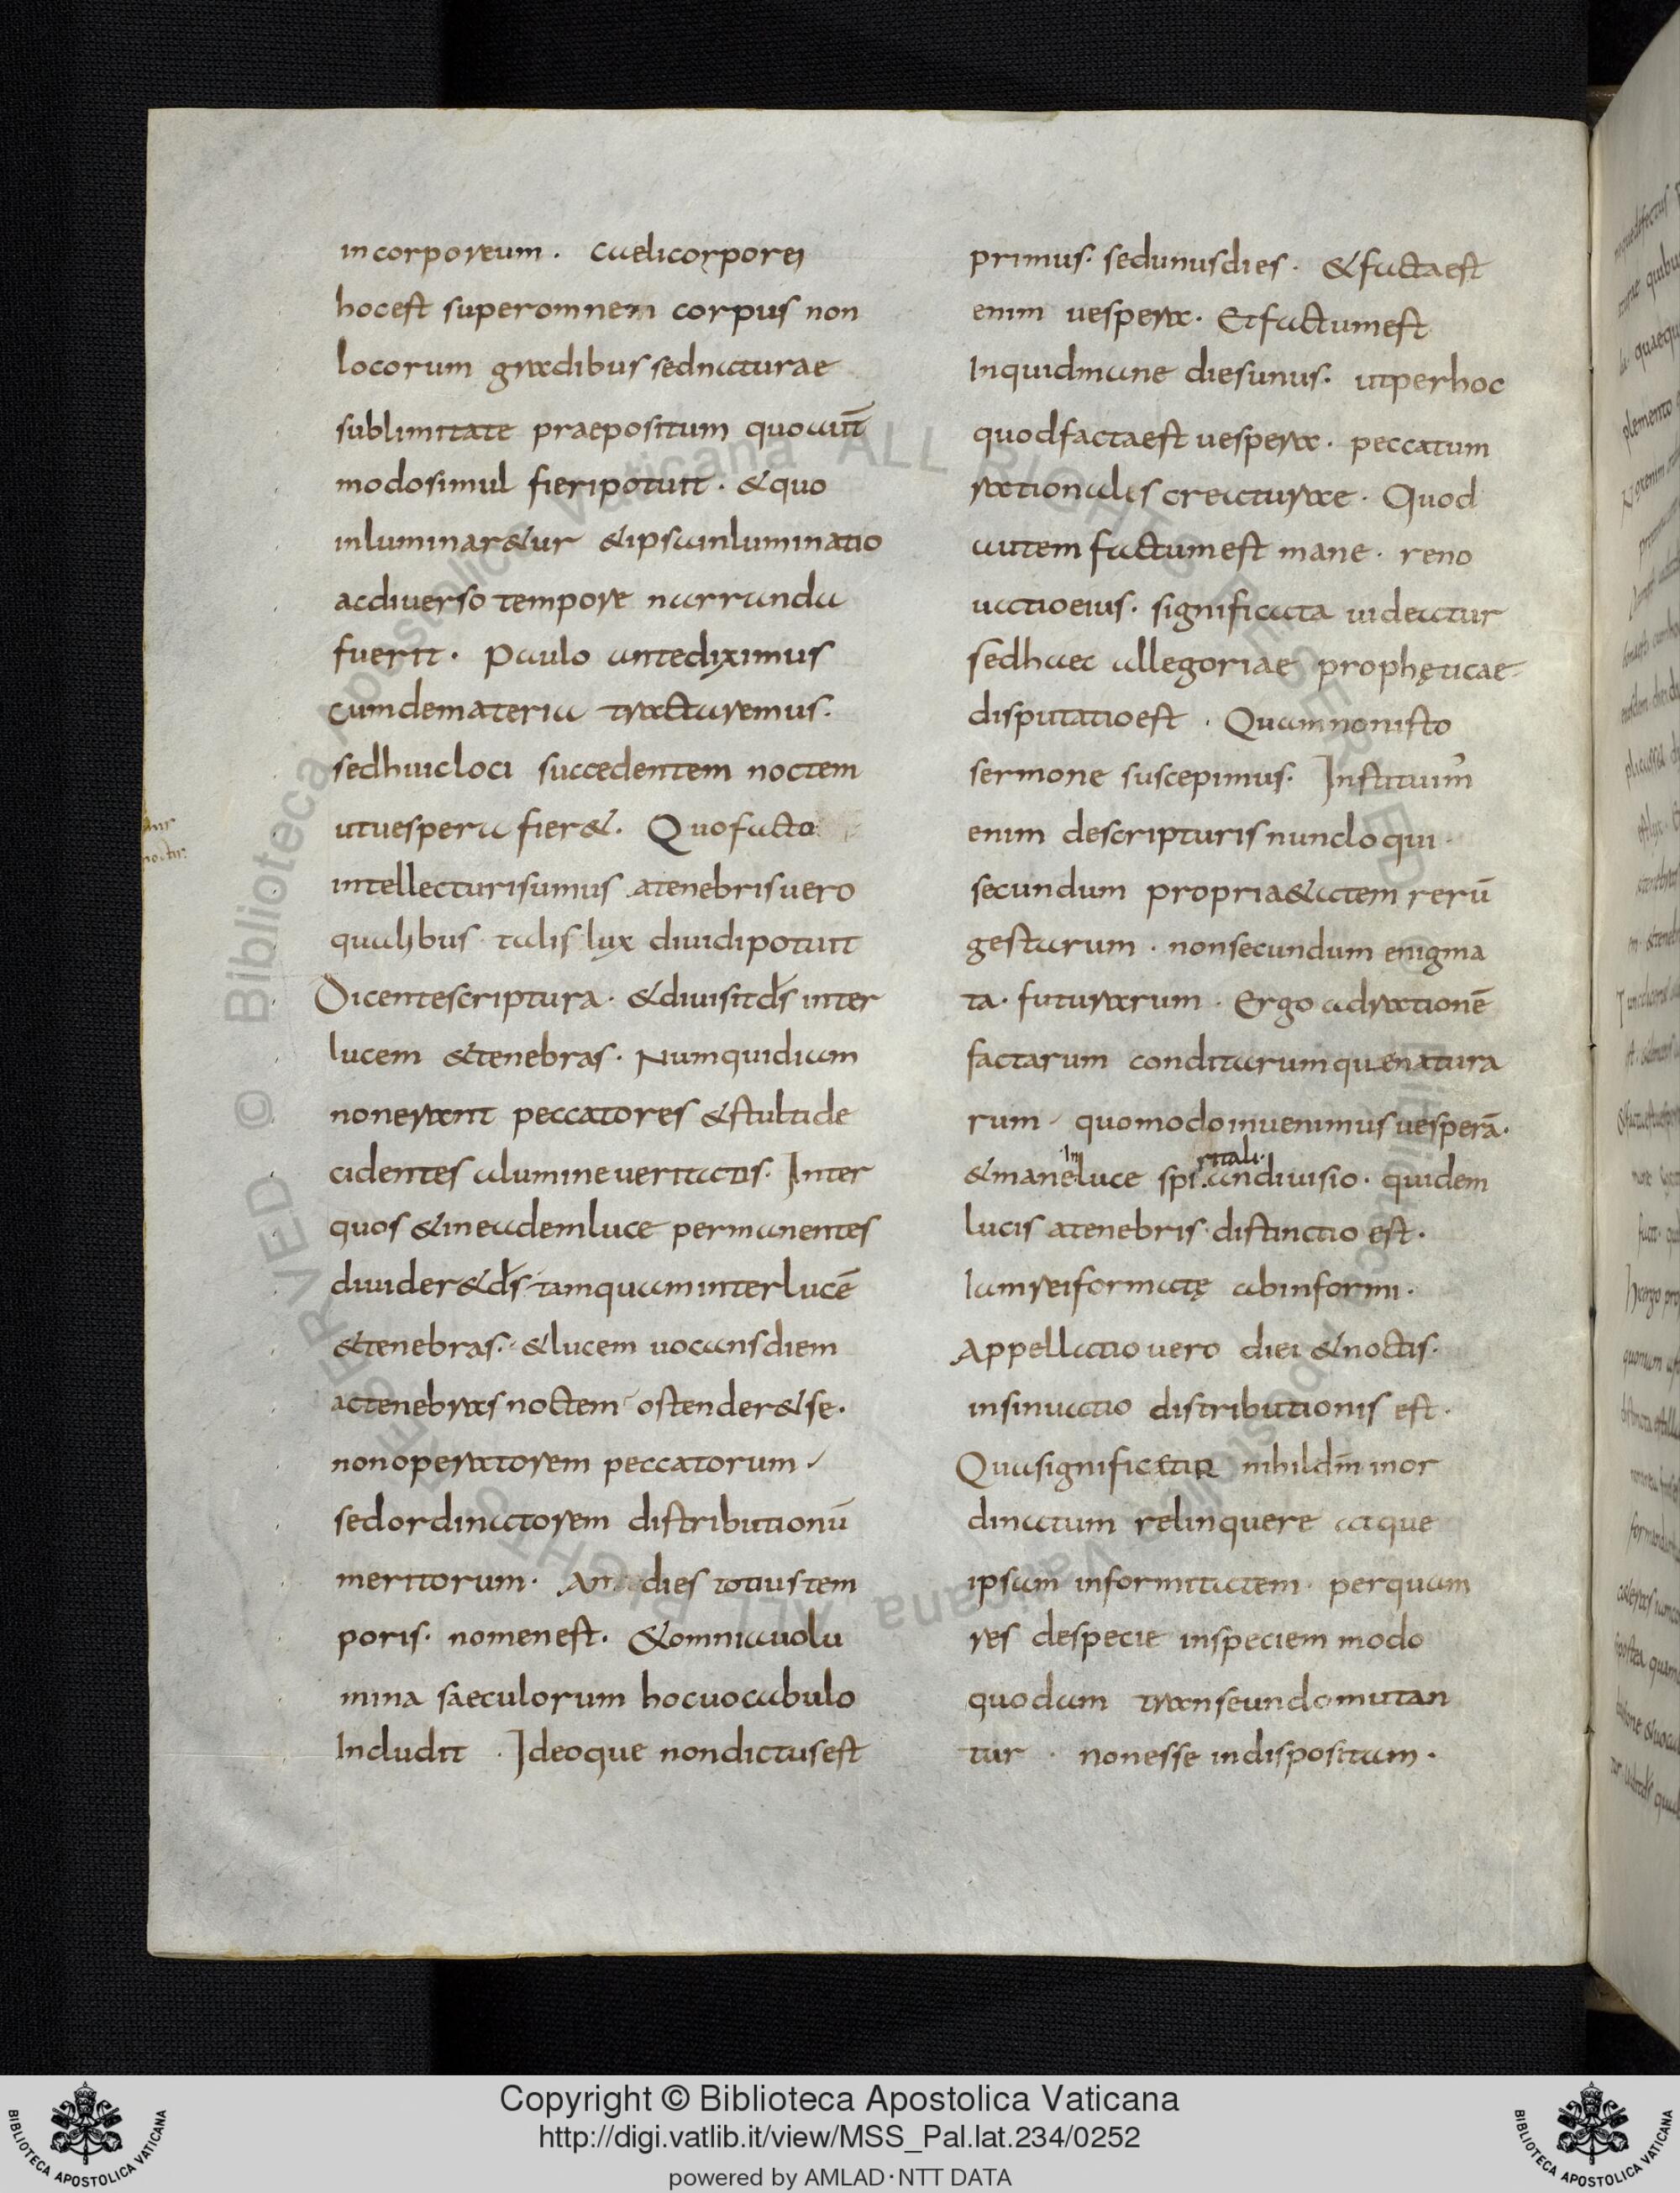 incorporeum. caelicorporei
hocest superomnem corpus non
locorum gradibus sednaturae
sublimitate praepositum quoaut̄
modosimul fieripotuit. &quo
inluminar&ur &ipsainluminatio
acdiuerso tempore narranda
fuerit. Paulo antediximus
cumdemateria tractaremus.
sedhuicloci succedentem noctem
utuespera fier&. Quofacto
intellecturisumus atenebrisuero
qualibus talis lux diuidipotuit
Dicentescriptura. &diuisitd̄s inter
lucem &tenebras. Numquidiam
nonerant peccatores &stultide
cidentes alumineueritatis. Inter
quos &ineademluce permanentes
diuider&d̄s tamquaminterlucē
&tenebras. &lucem uocansdiem
actenebras noctem ostender&se.
nonoperatorem peccatorum
sedordinatorem distributionū
meritorum. An dies totiustem
poris. nomenest. &omniauolu
mina saeculorum hocuocabulo
Includit . Ideoque nondictusest
primus. sedunusdies. &factaest
enim uespera. Etfactumest
Inquidmane diesunus. utperhoc
quodfactaest uespera. peccatum
rationales creaturae. Quod
autem factumest mane. reno
uatioeius. significata uideatur
sedhaec allegoriae prophęticae
disputatioest . Quamnonisto
sermone suscepimus. Instituim̄
enim descripturisnuncloqui
secundum propria&atem rerū
gestarum . nonsecundum enigma
ta. futurarum . Ergo adrationē
factarum conditarumquenatura
rum quomodoinuenimusuesperā.
In ritali.
&maneluce spi.andiuisio. quidem
lucis atenebris distinctio est.
Iamreiformatę abinformi.
Appellatiouero diei &noctis.
insinuatio distributionis est.
Quasignificetur nihild̄m inor
dinatum relinquere atque
ipsam informitatem perquam
res despecie inspeciem modo
quodam transeundomutan
tur . nonesse indispositam.
© Biblioteca Apostolica Vaticana ALL RIGHTS RESERVED
Copyright © Biblioteca Apostolica Vaticana
http://digi.vatlib.it/view/MSS_Pal.lat.234/0252
powered by AMLAD·NTT DATA
BIBLIOTECA APOSTOLICA VATICANA
BIBLIOTECA APOSTOLICA VATICANA